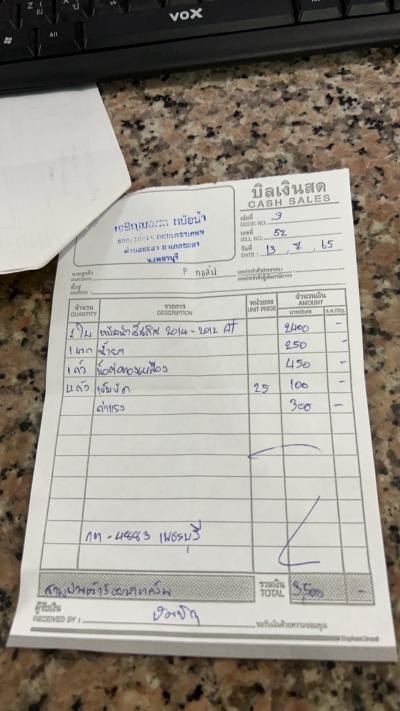 VOX
Alt
บิลเงินสด
CASH SALES
เจริญยนต์ หม้อน้ำ
จ.เพชรบุรี
เล่มที่ 9
BOOK NO.
เลขที่ 52
BILL NO.
วันที่ 13, 7, 65
DATE :
นามลูกค้า P กอล์ฟ
ที่อยู่
ADDRESS
จำนวน รายการ หน่วยละ จำนวนเงิน
QUANTITY DESCRIPTION UNIT PRICE AMOUNT
1 ใบ หม้อน้ำ 2014-2012 AT 2400 -
น้ำยา 250 -
1 ตัว ข้อต่อทองเหลือง 450 -
4 ตัว เข็มขัด 25 100 -
ค่าแรง 300 -
กท - 4883 เพชรบุรี
สามพันห้าร้อยบาทถ้วน รวมเงิน 3,500 -
TOTAL
ผู้รับเงิน
RECEIVED BY : ขอรับเงินด้วยความขอบคุณ
Elephant Brand